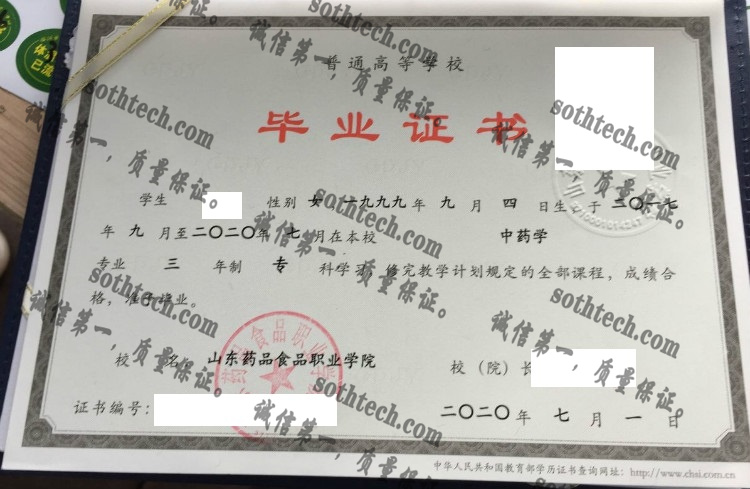 普通高等学校
毕业证书
学生 性别 女 一九九九年 九 月 四 日生,于 二〇一七
年 九 月至二〇二〇年 七 月在本校 中药学
专业 三 年制 专 科学习,修完教学计划规定的全部课程,成绩合
格,准予毕业。
校 名: 山东药品食品职业学院
校(院)长
证书编号:
二〇二〇年 七 月 一 日
中华人民共和国教育部学历证书查询网址:http://www.chsi.com.cn
sothtech.com
诚信第一,质量保证。
sothtech.com
诚信第一,质量保证。
sothtech.com
诚信第一,质量保证。
sothtech.com
诚信第一,质量保证。
sothtech.com
诚信第一,质量保证。
sothtech.com
诚信第一,质量保证。
sothtech.com
诚信第一,质量保证。
sothtech.com
诚信第一,质量保证。